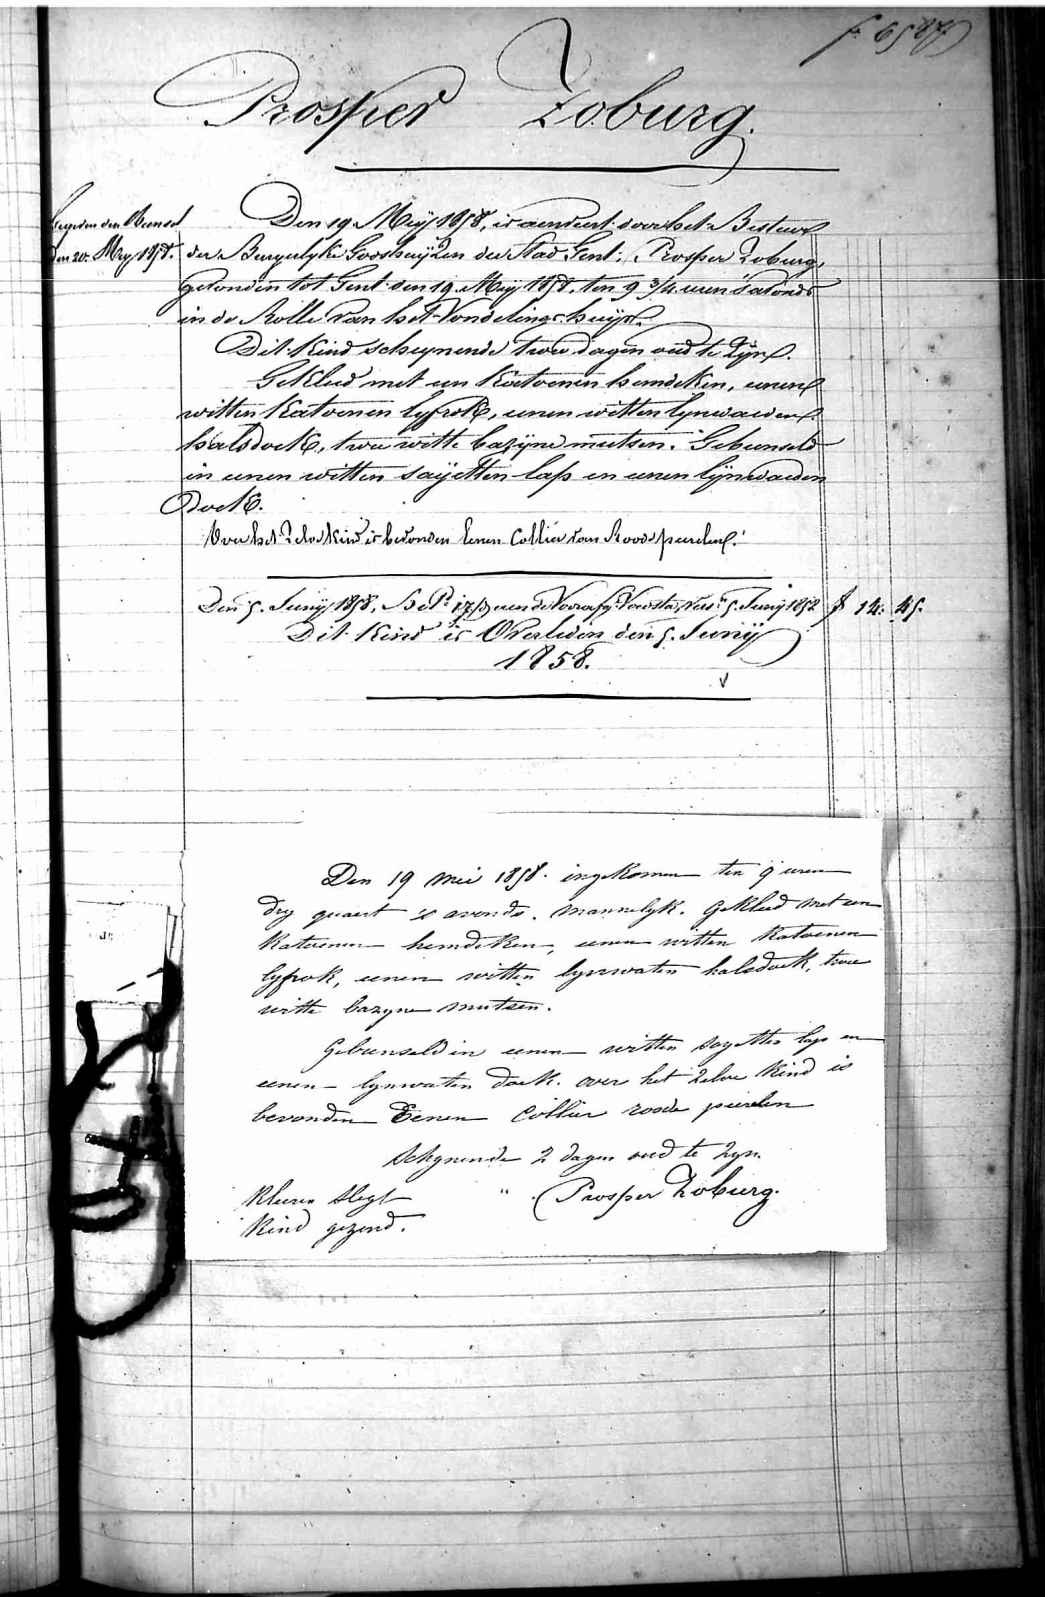 Prosper Zoburg.
Den 19 Meij 1858, is aenveert door het Bestuur
den 20. Mey 1858.
der Burgerlyke Godshuijzen der Stad Gent: Prosper Zoburg,
gevonden tot Gent den 19 Meij 1858, ten 9 3/4 uren 's avonds
in de Rolle van het Vondelingshuijs.
Dit Kind schynende twee dagen oud te Zijn.
Gekleed met een Katoenen hemdeken, eenen
witten Katoenen lyfrok, eenen witten lynwaeden
halsdoek, twee witte bazijne mutsen. Gebunseld
in eenen witten saijetten lap en eenen lijnwaeden
doek.
Over het Zelve Kind is bevonden Eenen Collier van Roode peirelen.
Den 5. Junij 1858, 5. Junij 1858 f 14. 45.
Dit Kind is Overleden den 5. Junij
1858.
Den 19 mei 1858. ingekomen ten 9 uren
dry quaert 's avonds. mannelyk. gekleed met een
Katoenen hemdeken, eenen witten Katoenen
lyfrok, eenen witten lynwaten halsdoek, twee
witte bazyne mutsen.
Gebunseld in eenen witten sayetten lap en
eenen lynwaten doek. over het Zelve Kind is
bevonden Eenen Collier roode peirelen
Schynende 2 dagen oud te Zyn.
Kleeren Slegt " Prosper Zoburg.
Kind gezond.